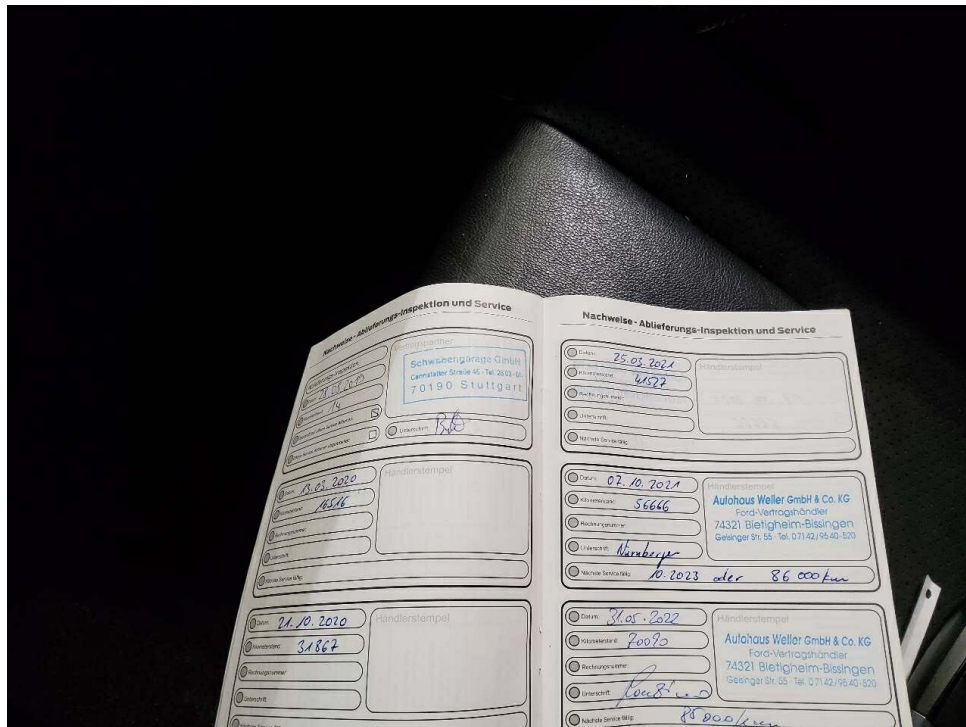 Nachweise - Ablieferungs-Inspektion und Service
Ablieferungs-Inspektion
14
Schwabengarage GmbH
Cannstatter Straße 46 - Tel.
70190 Stuttgart
Unterschrift:
Datum: 13.03.2020
Kilometerstand: 16516
Rechnungsnummer:
Unterschrift:
Nächste Service fällig:
Händlerstempel
Datum: 21.10.2020
Kilometerstand: 31867
Rechnungsnummer:
Unterschrift:
Händlerstempel
Nachweise - Ablieferungs-Inspektion und Service
Datum: 25.03.2021
Kilometerstand: 41527
Rechnungsnummer:
Unterschrift:
Nächste Service fällig:
Händlerstempel
Datum: 07.10.2021
Kilometerstand: 56666
Rechnungsnummer:
Unterschrift: Nürnberger
Nächste Service fällig: 10.2023 oder 86 000 km
Händlerstempel
Autohaus Weller GmbH & Co. KG
Ford-Vertragshändler
74321 Bietigheim-Bissingen
Geisinger Str. 55 · Tel. 07142/9540-520
Datum: 31.05.2022
Kilometerstand: 70090
Rechnungsnummer:
Unterschrift:
Nächste Service fällig: 85 000 km
Händlerstempel
Autohaus Weller GmbH & Co. KG
Ford-Vertragshändler
74321 Bietigheim-Bissingen
Geisinger Str. 55 · Tel. 07142/9540-520